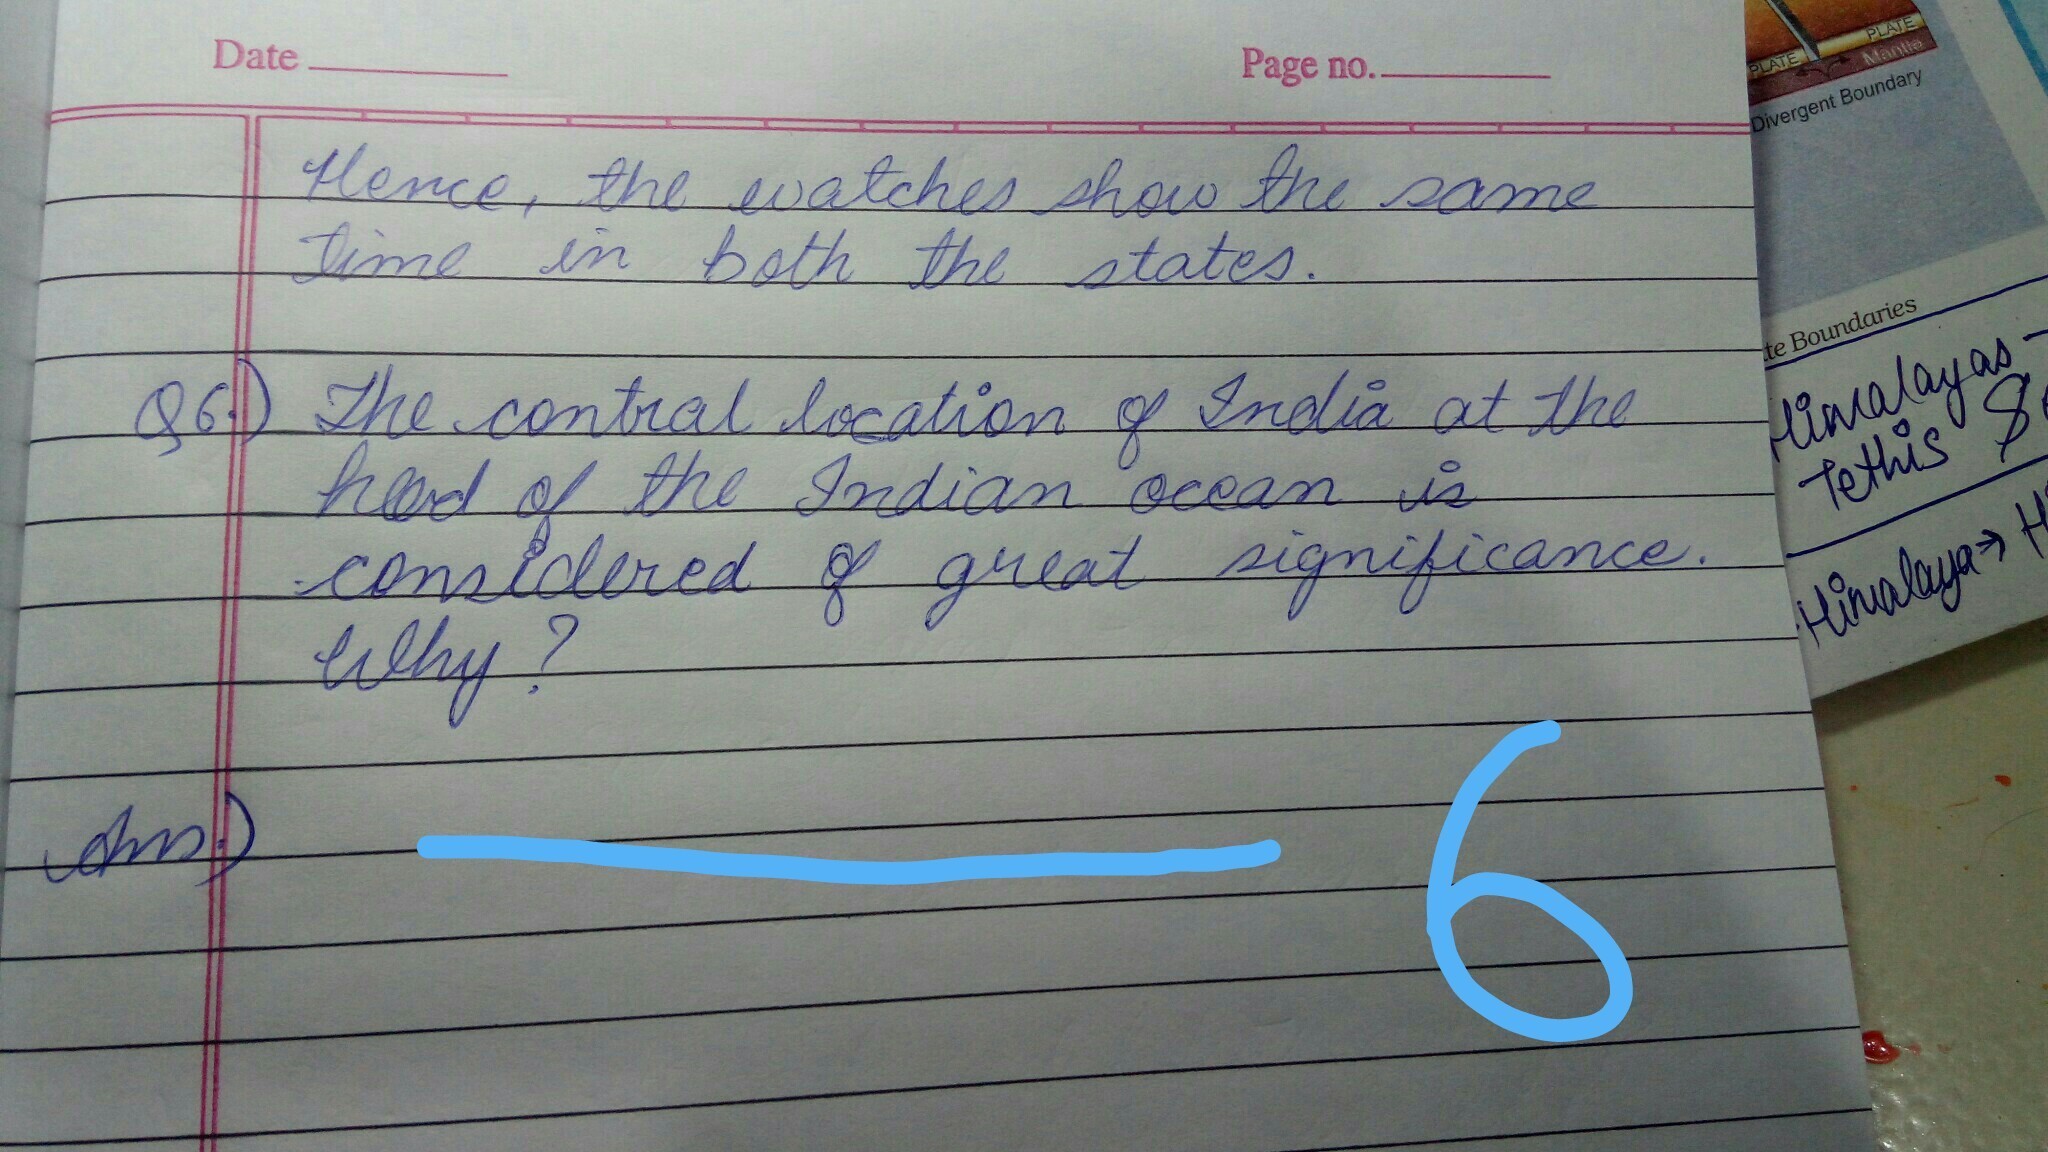 Date
Page no.
Hence, the watches show the same
time in both the states.
Q6.) The contral location of India at the
head of the Indian ocean is
considered of great significance.
Why?
Ans.)
6
PLATE
PLATE
Mantle
Divergent Boundary
te Boundaries
Himalayas -
Tethis
Himalaya →